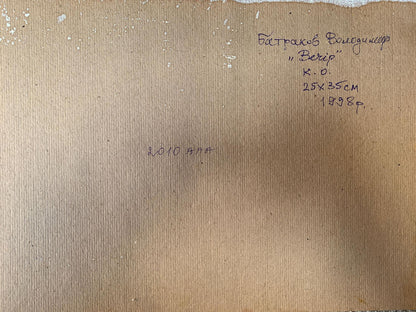 Батраков Володимир
„Вечір"
К. О.
25х35см
1998р.
2010 ААА